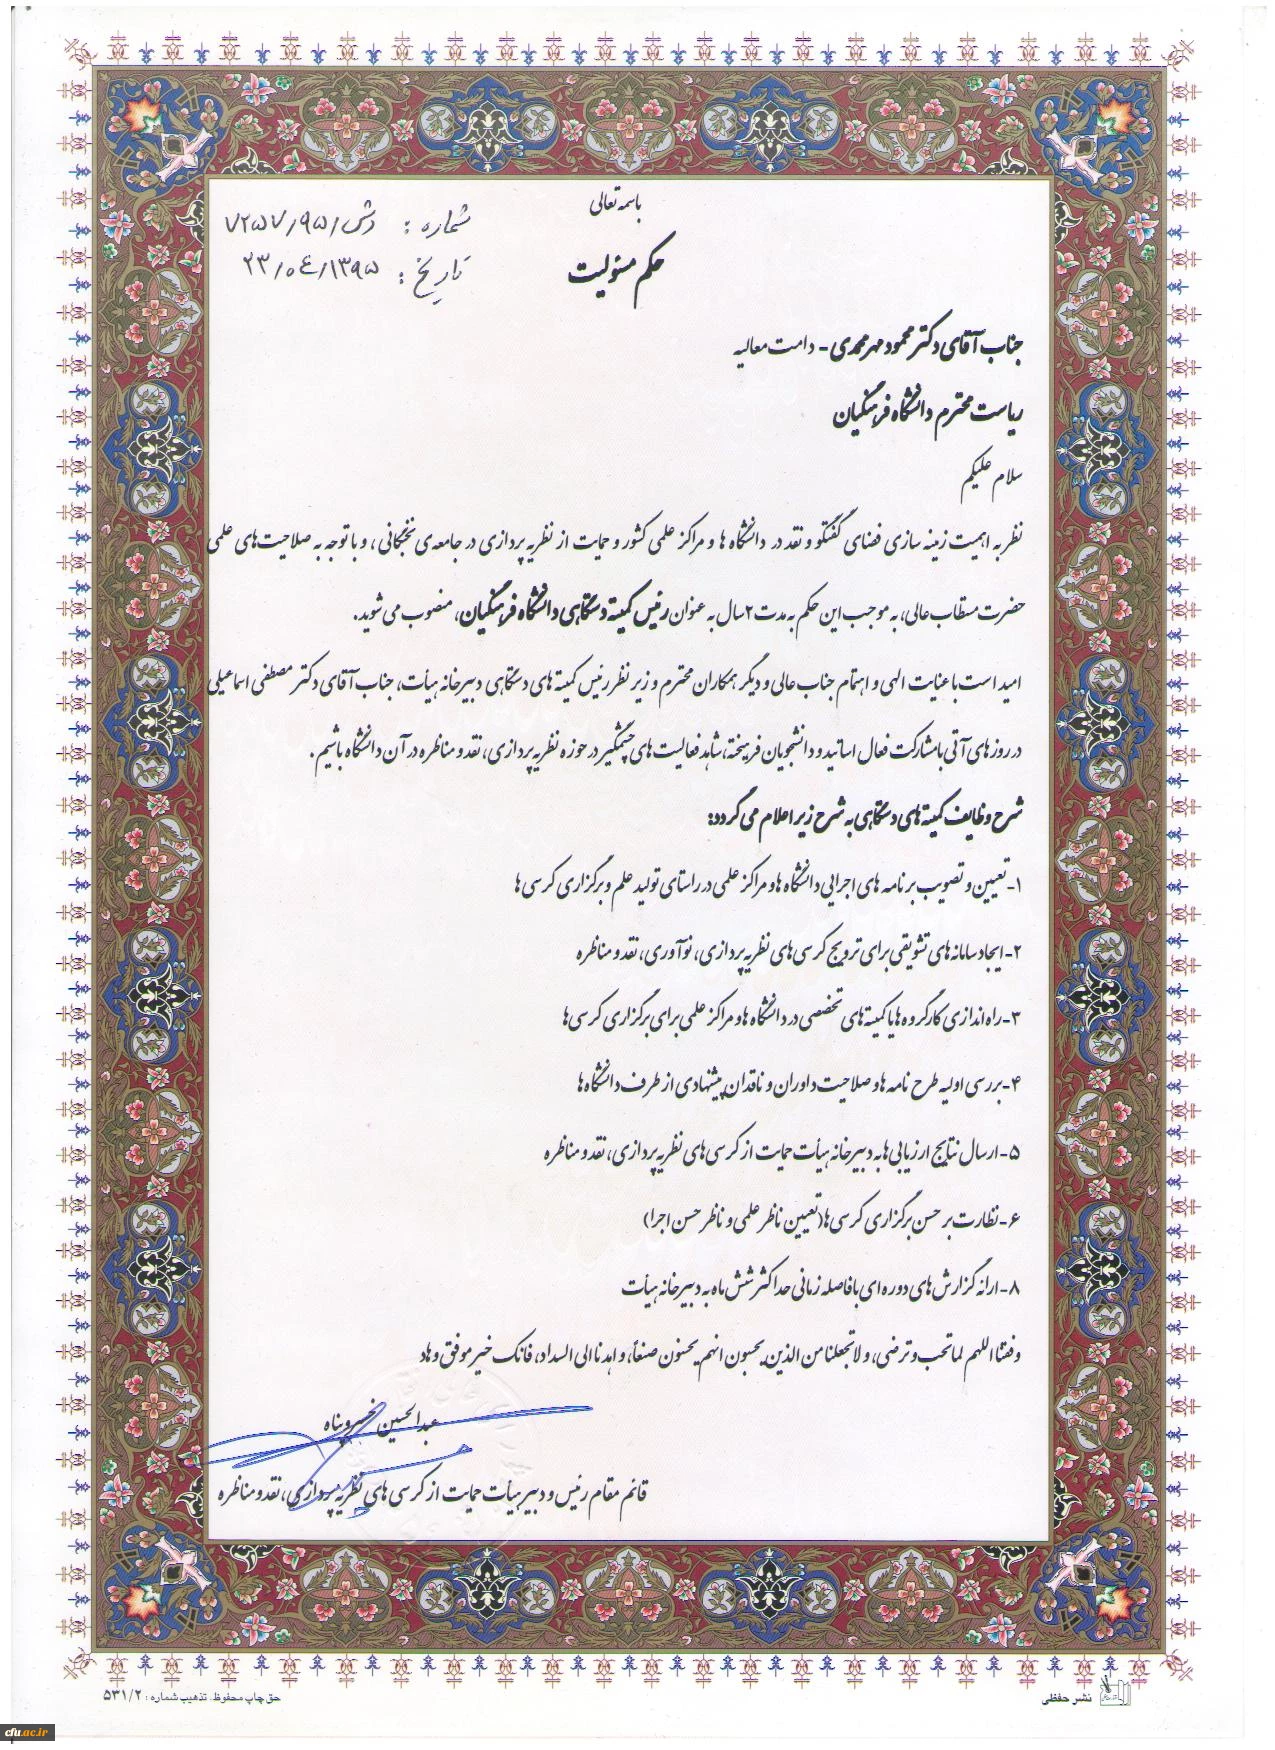 باسمه تعالی
شماره : دش/۹۵/۷۲۵۷
تاریخ : ۱۳۹۵/۰۴/۲۳
حکم مسئولیت
جناب آقای دکتر محمود مهرمحمدی - دامت معالیه
ریاست محترم دانشگاه فرهنگیان
سلام علیکم
نظر به اهمیت زمینه سازی فضای گفتگو و نقد در دانشگاه ها و مراکز علمی کشور و حمایت از نظریه پردازی در جامعه‌ی نخبگانی، و با توجه به صلاحیت‌های علمی
حضرت مستطاب عالی، به موجب این حکم به مدت ۲ سال به عنوان رئیس کمیته دستگاهی دانشگاه فرهنگیان، منصوب می شوید.
امید است با عنایت الهی و اهتمام جناب عالی و دیگر همکاران محترم و زیر نظر رئیس کمیته های دستگاهی دبیرخانه هیأت، جناب آقای دکتر مصطفی اسماعیلی
در روزهای آتی با مشارکت فعال اساتید و دانشجویان فرهیخته، شاهد فعالیت های چشمگیر در حوزه نظریه پردازی، نقد و مناظره در آن دانشگاه باشیم.
شرح وظایف کمیته های دستگاهی به شرح زیر اعلام می گردد:
۱- تعیین و تصویب برنامه های اجرایی دانشگاه ها و مراکز علمی در راستای تولید علم و برگزاری کرسی ها
۲- ایجاد سامانه های تشویقی برای ترویج کرسی های نظریه پردازی، نوآوری، نقد و مناظره
۳- راه اندازی کارگروه ها یا کمیته های تخصصی در دانشگاه ها و مراکز علمی برای برگزاری کرسی ها
۴- بررسی اولیه طرح نامه ها و صلاحیت داوران و ناقدان پیشنهادی از طرف دانشگاه ها
۵- ارسال نتایج ارزیابی ها به دبیرخانه هیأت حمایت از کرسی های نظریه پردازی، نقد و مناظره
۶- نظارت بر حسن برگزاری کرسی ها (تعیین ناظر علمی و ناظر حسن اجرا)
۸- ارائه گزارش های دوره ای با فاصله زمانی حداکثر شش ماه به دبیرخانه هیأت
وفقنا اللهم لما تحب و ترضی، و لا تجعلنا من الذین یحسبون انهم یحسنون صنعاً، و اهدنا الی السداد، فانک خیر موفق و هاد
عبدالحسین خسروپناه
قائم مقام رئیس و دبیر هیأت حمایت از کرسی های نظریه پردازی، نقد و مناظره
نشر حفظی
حق چاپ محفوظ، تذهیب شماره : ۵۳۱/۲
cfu.ac.ir